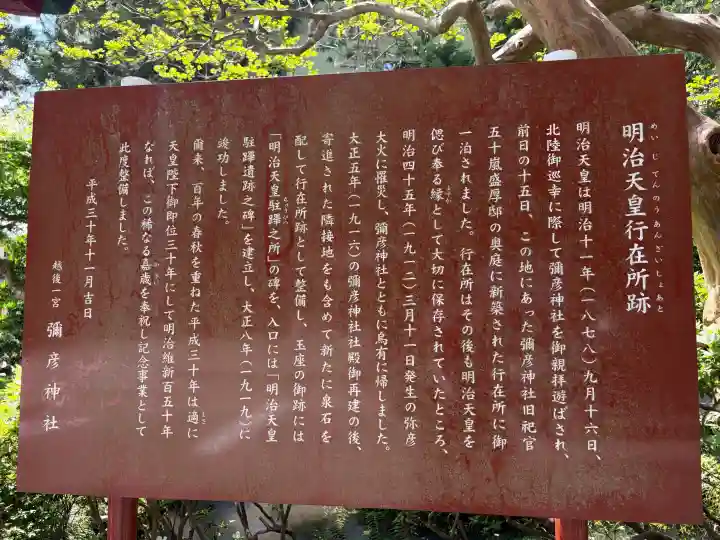 明治天皇行在所跡
めいじてんのうあんざいしょあと
明治天皇は明治十一年(一八七八)九月十六日、
北陸御巡幸に際して彌彦神社を御親拝遊ばされ、
前日の十五日、この地にあった彌彦神社旧祀官
五十嵐盛厚邸の奥庭に新築された行在所に御
一泊されました。行在所はその後も明治天皇を
偲び奉る縁として大切に保存されていたところ、
明治四十五年(一九一二)三月十一日発生の弥彦
大火に罹災し、彌彦神社とともに烏有に帰しました。
大正五年(一九一六)の彌彦神社社殿御再建の後、
寄進された隣接地をも含めて新たに泉石を
配して行在所跡として整備し、玉座の御跡には
「明治天皇駐蹕之所」の碑を、入口には「明治天皇
駐蹕遺跡之碑」を建立し、大正八年(一九一九)に
竣功しました。
爾来、百年の春秋を重ねた平成三十年は適に
天皇陛下御即位三十年にして明治維新百五十年
なれば、この稀なる嘉歳を奉祝し記念事業として
此度整備しました。
平成三十年十一月吉日
越後一宮 彌彦神社